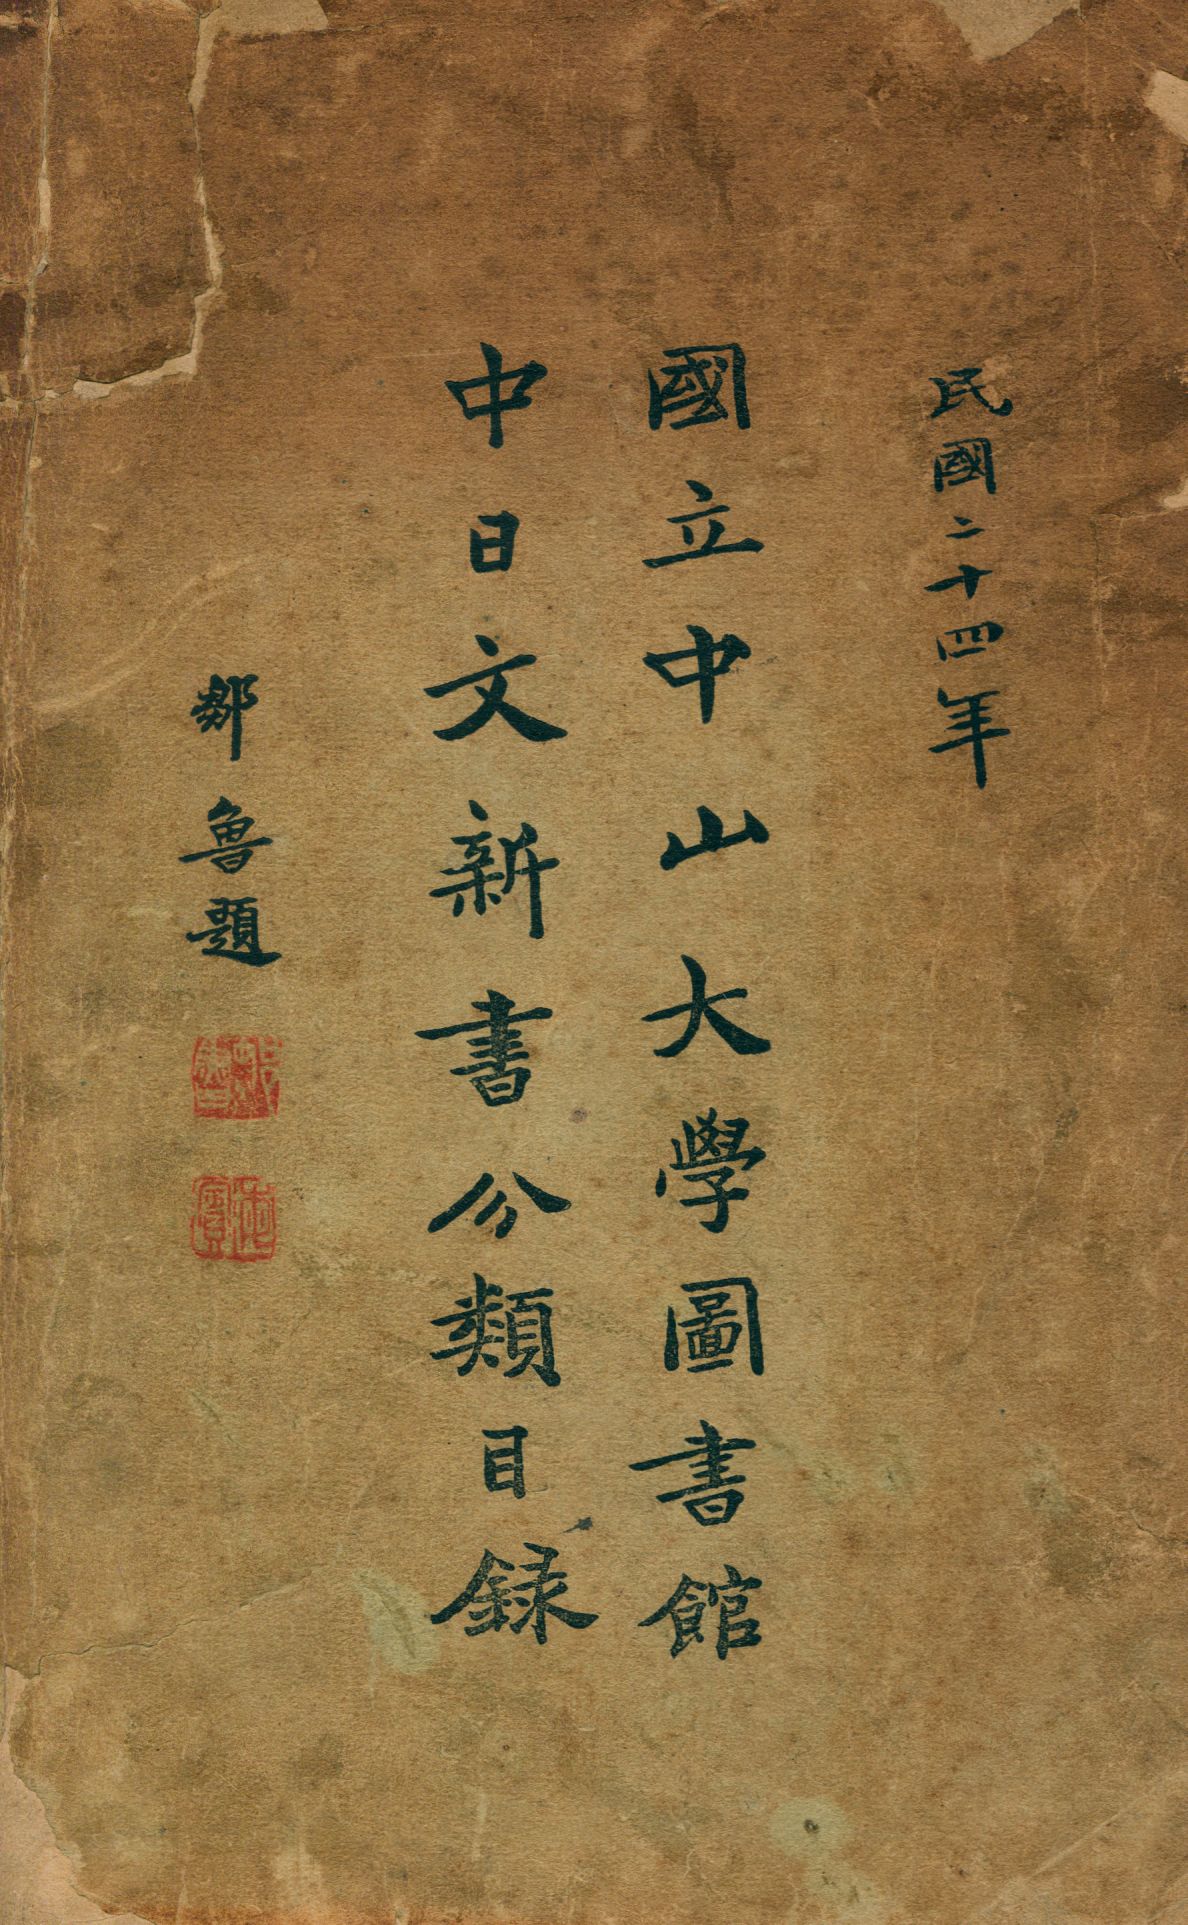 民國二十四年
國立中山大學圖書館
中日文新書分類目録
鄒魯題